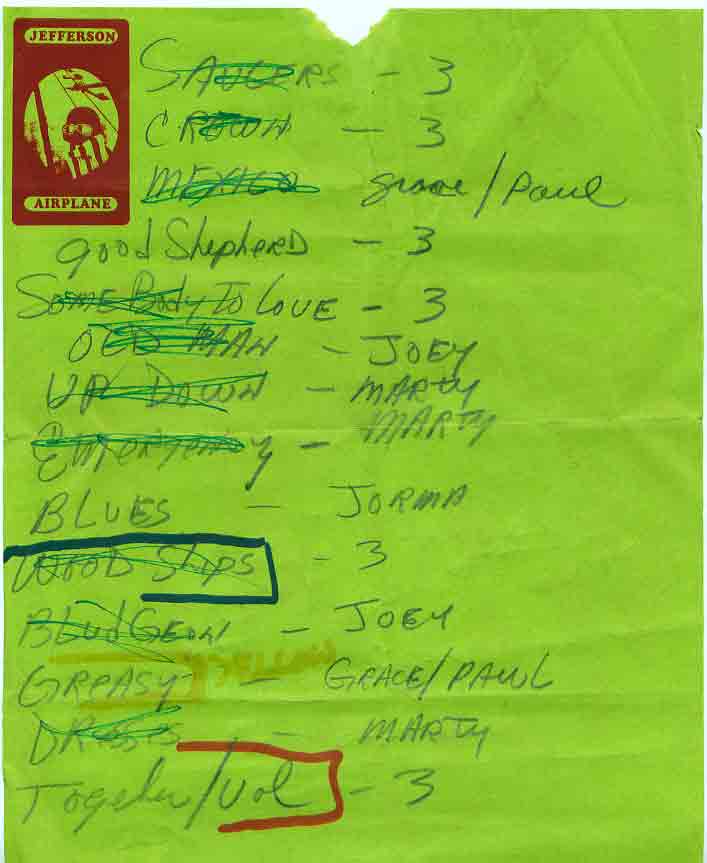 JEFFERSON
AIRPLANE
SAUCERS - 3
CROWN - 3
MEXICO grace/Paul
good ShepherD - 3
SOMEBody To LOVE - 3
OLD MAN - JOEY
UP DOWN - MARTY
Emergency - MARTY
BLUES - JORMA
WOOD Ships - 3
BLudGeon - JOEY
YELLOW
GREASY - GRACE/PAUL
- MARTY
Together/Vol - 3